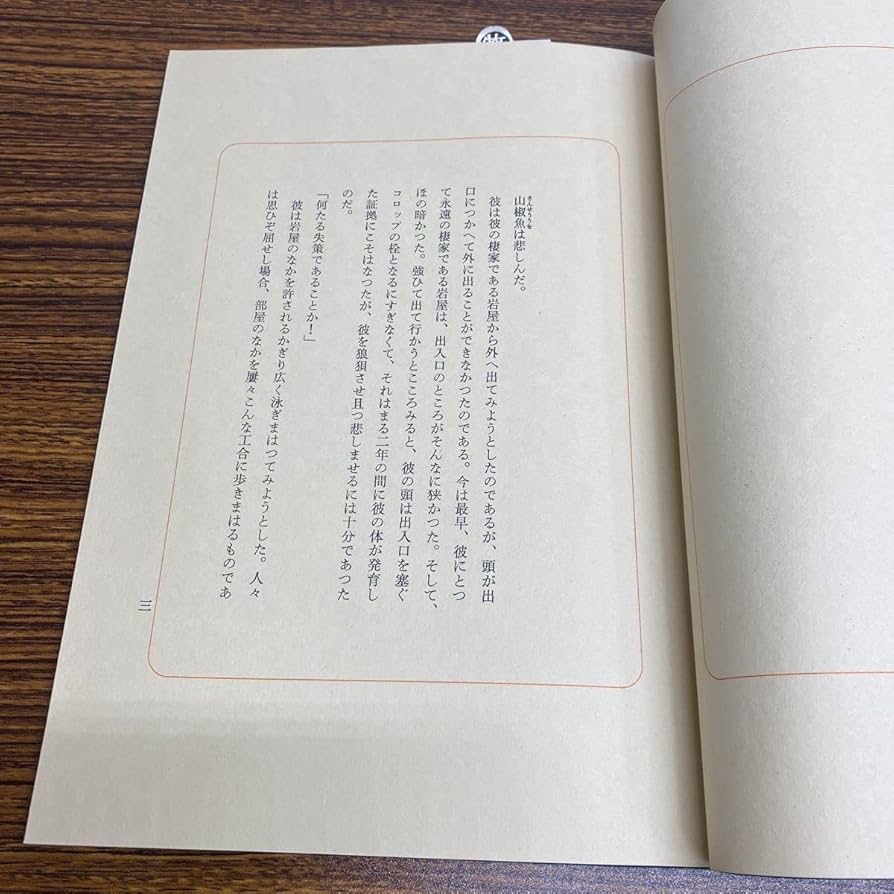 さんせううを
山椒魚は悲しんだ。
彼は彼の棲家である岩屋から外へ出てみようとしたのであるが、頭が出
口につかへて外に出ることができなかつたのである。今は最早、彼にとつ
て永遠の棲家である岩屋は、出入口のところがそんなに狭かつた。そして、
ほの暗かつた。強ひて出て行かうとこころみると、彼の頭は出入口を塞ぐ
コロップの栓となるにすぎなくて、それはまる二年の間に彼の体が発育し
た証拠にこそはなつたが、彼を狼狽させ且つ悲しませるには十分であつた
のだ。
「何たる失策であることか!」
彼は岩屋のなかを許されるかぎり広く泳ぎまはつてみようとした。人々
は思ひぞ屈せし場合、部屋のなかを屢々こんな工合に歩きまはるものであ
三